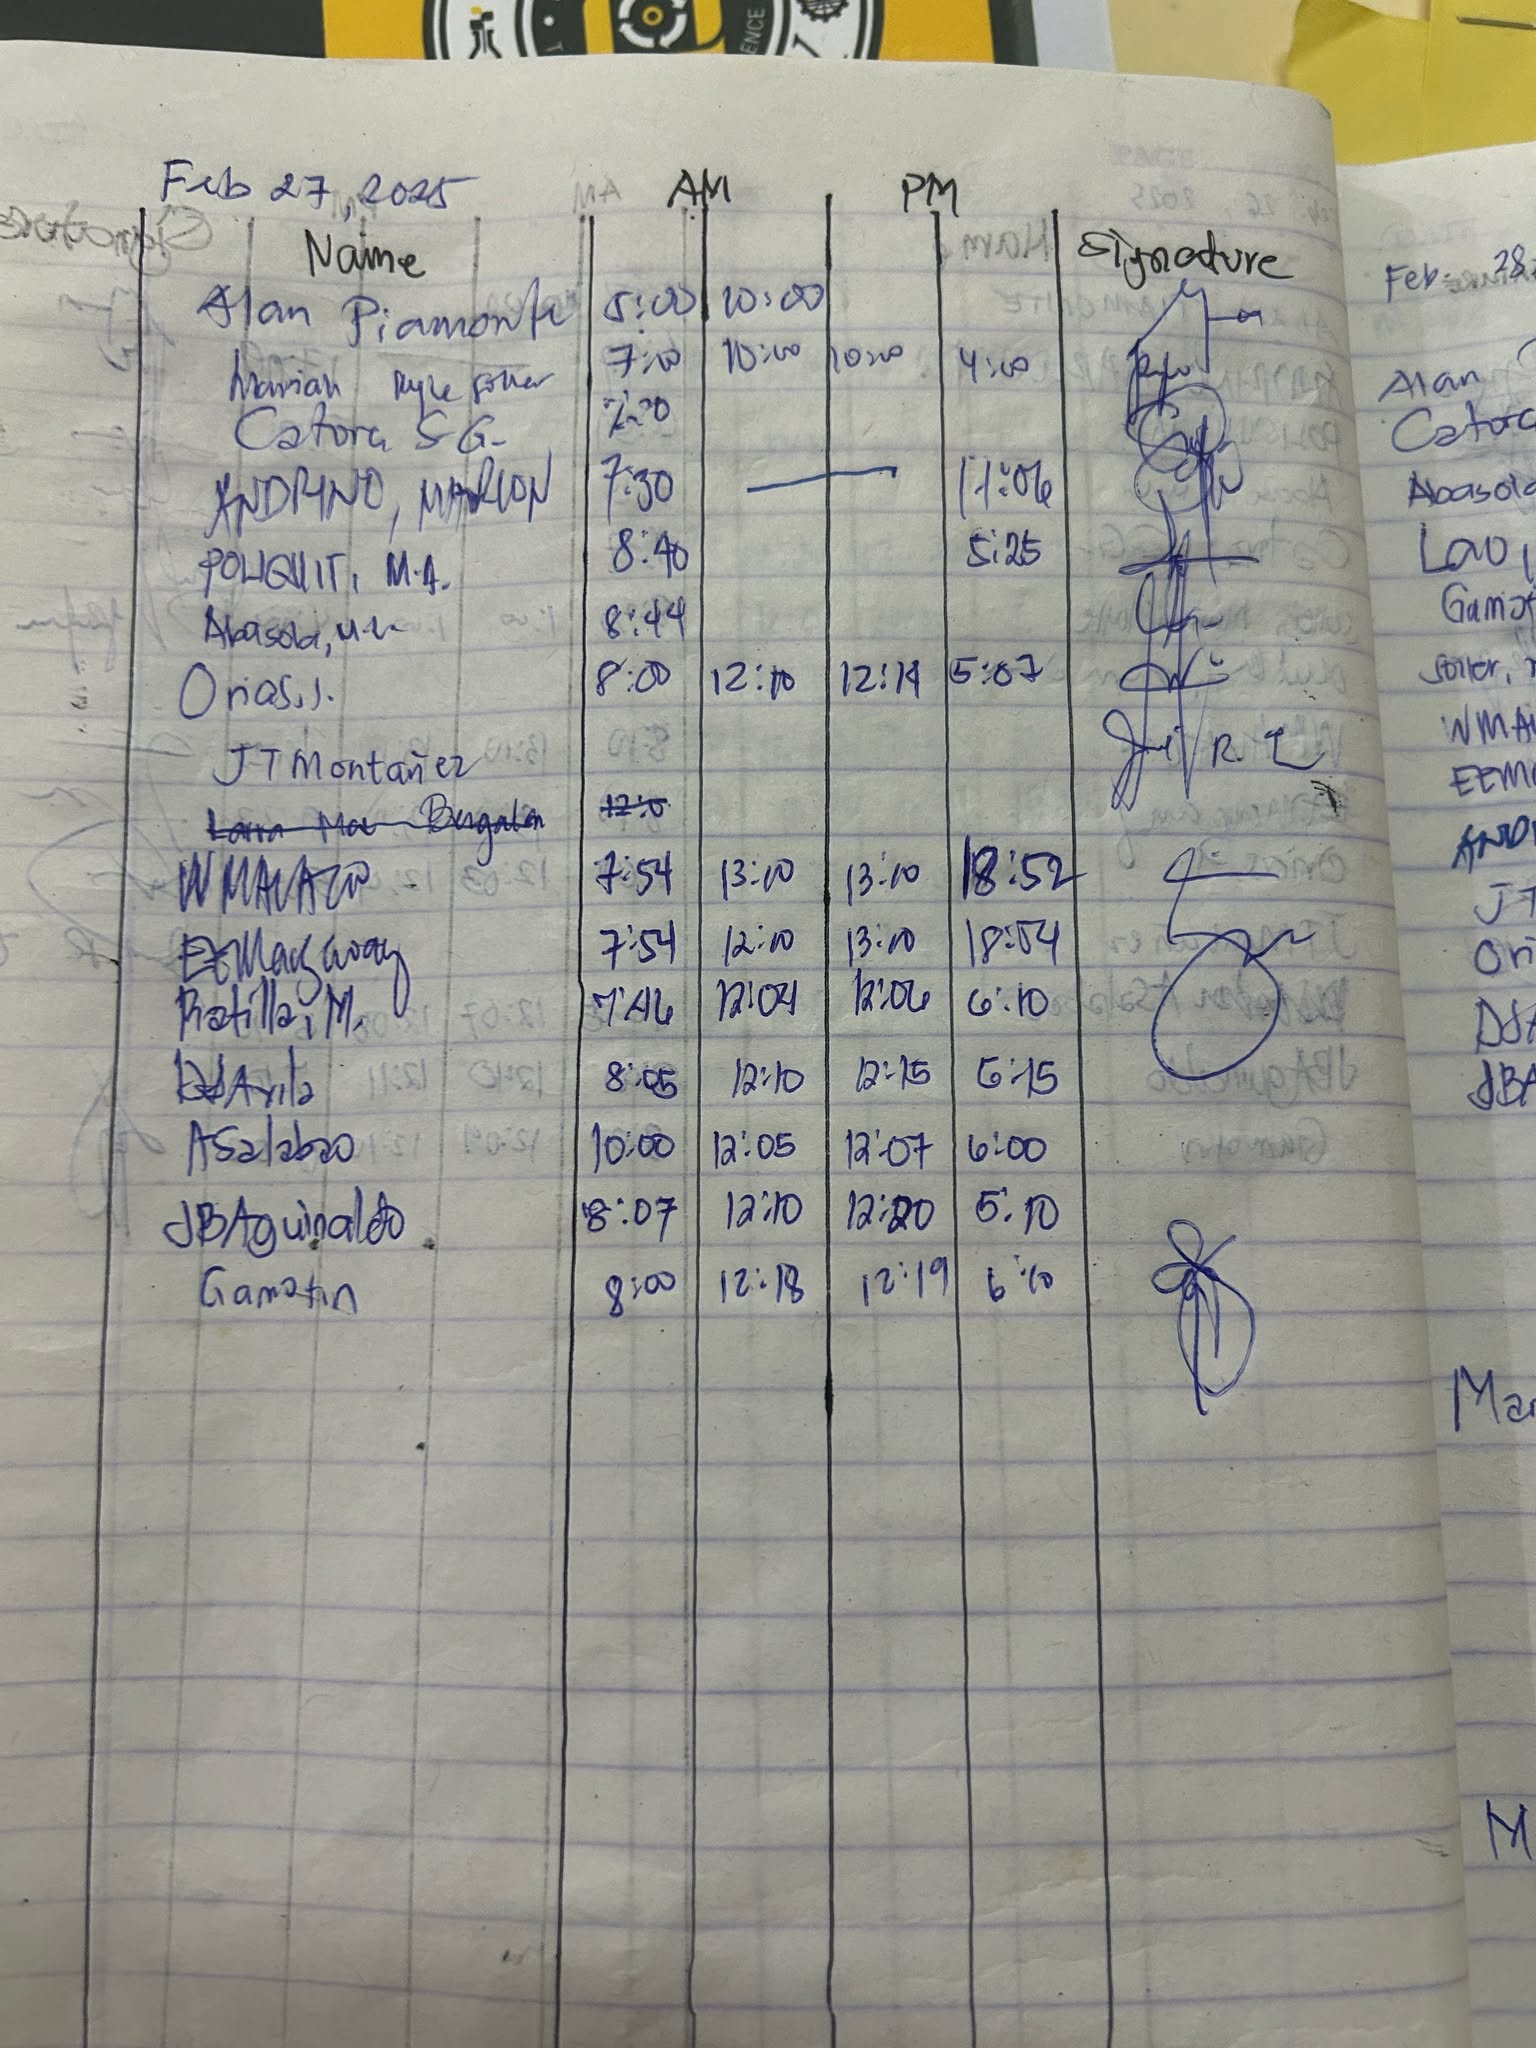 ENCE
Feb 27, 2025 AM PM
Name Signature
Alan Piamonte 5:00 10:00
Mariah Kyle Soller 7:00 10:00 10:00 4:00
Catora S G. 7:30
ANDRINO, MARLON 7:30 — 11:06
POLIQUIT, M.A. 8:40 5:25
Abasola, 8:44
Orias, J. 8:00 12:10 12:14 5:07
JTMontañez
12:0
WMALAZO 7:54 13:10 13:10 18:52
EEMagway 7:54 12:10 13:10 18:54
Ratilla, M. 7:46 12:04 12:06 6:10
DSAvila 8:05 12:10 12:15 5:15
ASalabao 10:00 12:05 12:07 6:00
JBAguinaldo 8:07 12:10 12:20 5:10
Gamotin 8:00 12:18 12:19 6:10
Feb. 28,
Alan
Catora
Abasola
Lao,
Gamot
Soller,
WMA
EEMa
ANDR
JT
Ori
DSA
JBA
Mar
M